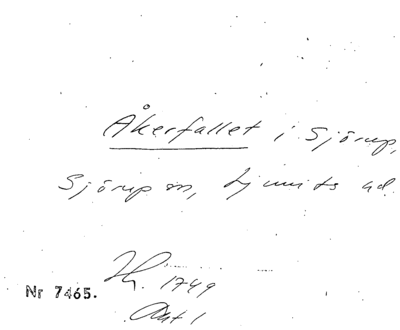 Åkerfallet i Sjörup,
Sjörup sn, Ljunits hd.
Nr 7465.
1749
Akt 1